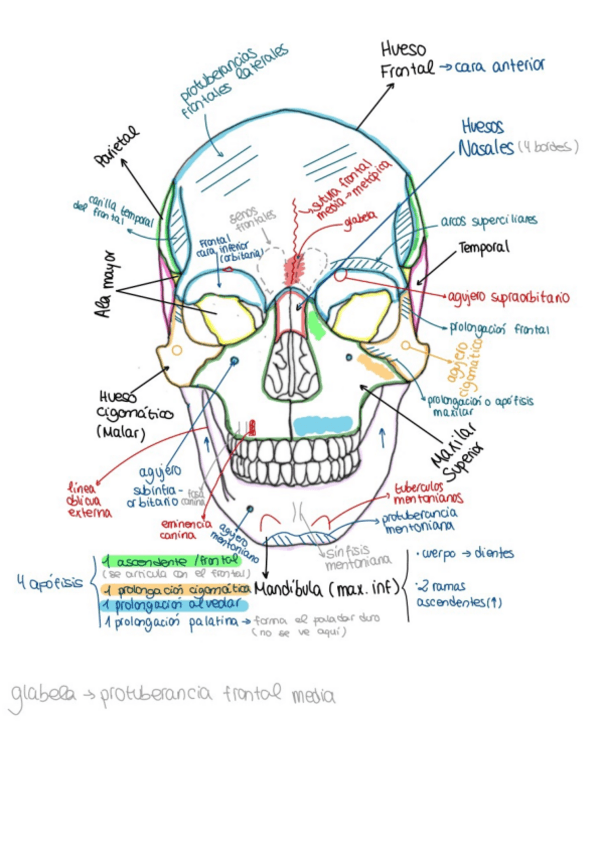 Hueso
Frontal → cara anterior
protuberancias
frontales laterales
Huesos
Nasales (4 bordes)
Parietal
carilla temporal
del frontal
senos
frontales
sutura frontal
media → metópica
glabela
Frontal
cara inferior
(orbitaria)
arcos superciliares
Temporal
Ala mayor
agujero supraorbitario
prolongación frontal
agujero
cigomático
Hueso
Cigomático
(Malar)
prolongación o apófisis
maxilar
Maxilar
Superior
linea
oblicua
externa
agujero
subinfra-
orbitario
fosa
canina
eminencia
canina
agujero
mentoniano
tuberculos
mentonianos
protuberancia
mentoniana
sínfisis
mentoniana
4 apófisis
1 ascendente /frontal
(se articula con el frontal)
1 prolongación cigomática
1 prolongación alveolar
1 prolongación palatina → forma el paladar duro
(no se ve aquí)
Mandíbula (max. inf)
· cuerpo → dientes
· 2 ramas
ascendentes (↑)
glabela → protuberancia frontal media